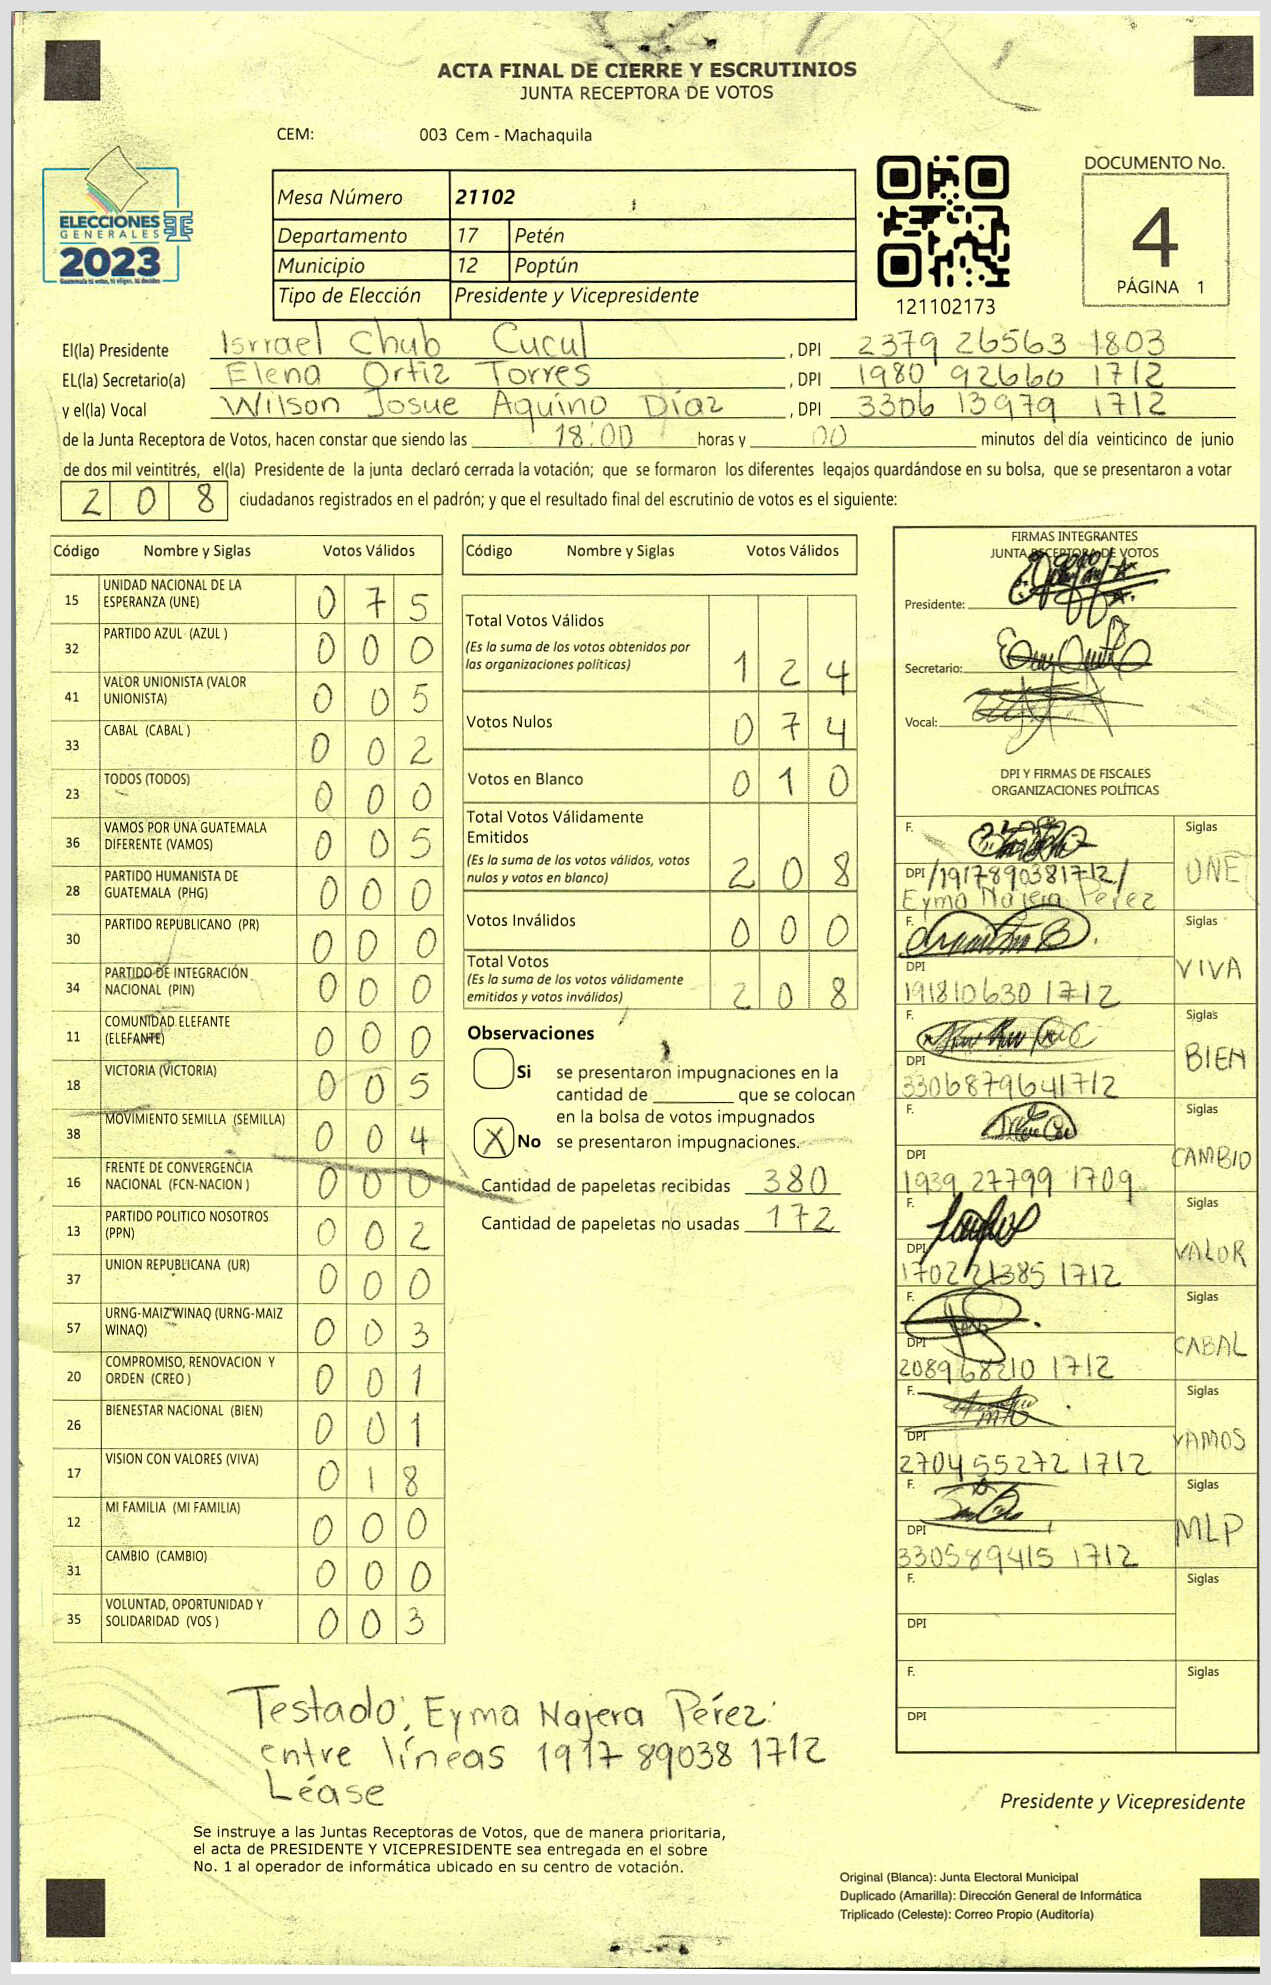 ACTA FINAL DE CIERRE Y ESCRUTINIOS
JUNTA RECEPTORA DE VOTOS
CEM: 003 Cem - Machaquila
ELECCIONES
GENERALES
2023
Mesa Número 21102
Departamento 17 Petén
Municipio 12 Poptún
Tipo de Elección Presidente y Vicepresidente
121102173
DOCUMENTO No.
4
PÁGINA 1
El(la) Presidente Isrrael Chub Cucul , DPI 2379 26563 1803
EL(la) Secretario(a) Elena Ortiz Torres , DPI 1980 92660 1712
y el(la) Vocal Wilson Josue Aquino Díaz , DPI 3306 13979 1712
de la Junta Receptora de Votos, hacen constar que siendo las 18:00 horas y 00 minutos del día veinticinco de junio
de dos mil veintitrés, el(la) Presidente de la junta declaró cerrada la votación; que se formaron los diferentes legajos quardándose en su bolsa, que se presentaron a votar
208 ciudadanos registrados en el padrón; y que el resultado final del escrutinio de votos es el siguiente:
Código Nombre y Siglas Votos Válidos
15 UNIDAD NACIONAL DE LA ESPERANZA (UNE) 0 7 5
32 PARTIDO AZUL (AZUL ) 0 0 0
41 VALOR UNIONISTA (VALOR UNIONISTA) 0 0 5
33 CABAL (CABAL ) 0 0 2
23 TODOS (TODOS) 0 0 0
36 VAMOS POR UNA GUATEMALA DIFERENTE (VAMOS) 0 0 5
28 PARTIDO HUMANISTA DE GUATEMALA (PHG) 0 0 0
30 PARTIDO REPUBLICANO (PR) 0 0 0
34 PARTIDO DE INTEGRACIÓN NACIONAL (PIN) 0 0 0
11 COMUNIDAD ELEFANTE (ELEFANTE) 0 0 0
18 VICTORIA (VICTORIA) 0 0 5
38 MOVIMIENTO SEMILLA (SEMILLA) 0 0 4
16 FRENTE DE CONVERGENCIA NACIONAL (FCN-NACION ) 0 0 0
13 PARTIDO POLITICO NOSOTROS (PPN) 0 0 2
37 UNION REPUBLICANA (UR) 0 0 0
57 URNG-MAIZ WINAQ (URNG-MAIZ WINAQ) 0 0 3
20 COMPROMISO, RENOVACION Y ORDEN (CREO ) 0 0 1
26 BIENESTAR NACIONAL (BIEN) 0 0 1
17 VISION CON VALORES (VIVA) 0 1 8
12 MI FAMILIA (MI FAMILIA) 0 0 0
31 CAMBIO (CAMBIO) 0 0 0
35 VOLUNTAD, OPORTUNIDAD Y SOLIDARIDAD (VOS ) 0 0 3
Código Nombre y Siglas Votos Válidos
Total Votos Válidos
(Es la suma de los votos obtenidos por
las organizaciones políticas) 1 2 4
Votos Nulos 0 7 4
Votos en Blanco 0 1 0
Total Votos Válidamente
Emitidos
(Es la suma de los votos válidos, votos
nulos y votos en blanco) 2 0 8
Votos Inválidos 0 0 0
Total Votos
(Es la suma de los votos válidamente
emitidos y votos inválidos) 2 0 8
Observaciones
Si se presentaron impugnaciones en la
cantidad de ________ que se colocan
en la bolsa de votos impugnados
X No se presentaron impugnaciones.
Cantidad de papeletas recibidas 380
Cantidad de papeletas no usadas 172
FIRMAS INTEGRANTES
JUNTA RECEPTORA DE VOTOS
Presidente:
Secretario:
Vocal:
DPI Y FIRMAS DE FISCALES
ORGANIZACIONES POLÍTICAS
F. Siglas
DPI /1917890381712/ UNE
Eyma Najera Perez
F. Siglas
DPI VIVA
191810630 1712
F. Siglas
DPI BIEN
3306879641712
F. Siglas
DPI CAMBIO
1939 27799 1709
F. Siglas
DPI VALOR
1702 21385 1712
F. Siglas
DPI CABAL
208968210 1712
F. Siglas
DPI VAMOS
2704 55272 1712
F. Siglas
DPI MLP
330589415 1712
F. Siglas
DPI
F. Siglas
DPI
Testado; Eyma Najera Pérez:
entre líneas 1917 89038 1712
Léase
Presidente y Vicepresidente
Se instruye a las Juntas Receptoras de Votos, que de manera prioritaria,
el acta de PRESIDENTE Y VICEPRESIDENTE sea entregada en el sobre
No. 1 al operador de informática ubicado en su centro de votación.
Original (Blanca): Junta Electoral Municipal
Duplicado (Amarilla): Dirección General de Informática
Triplicado (Celeste): Correo Propio (Auditoría)